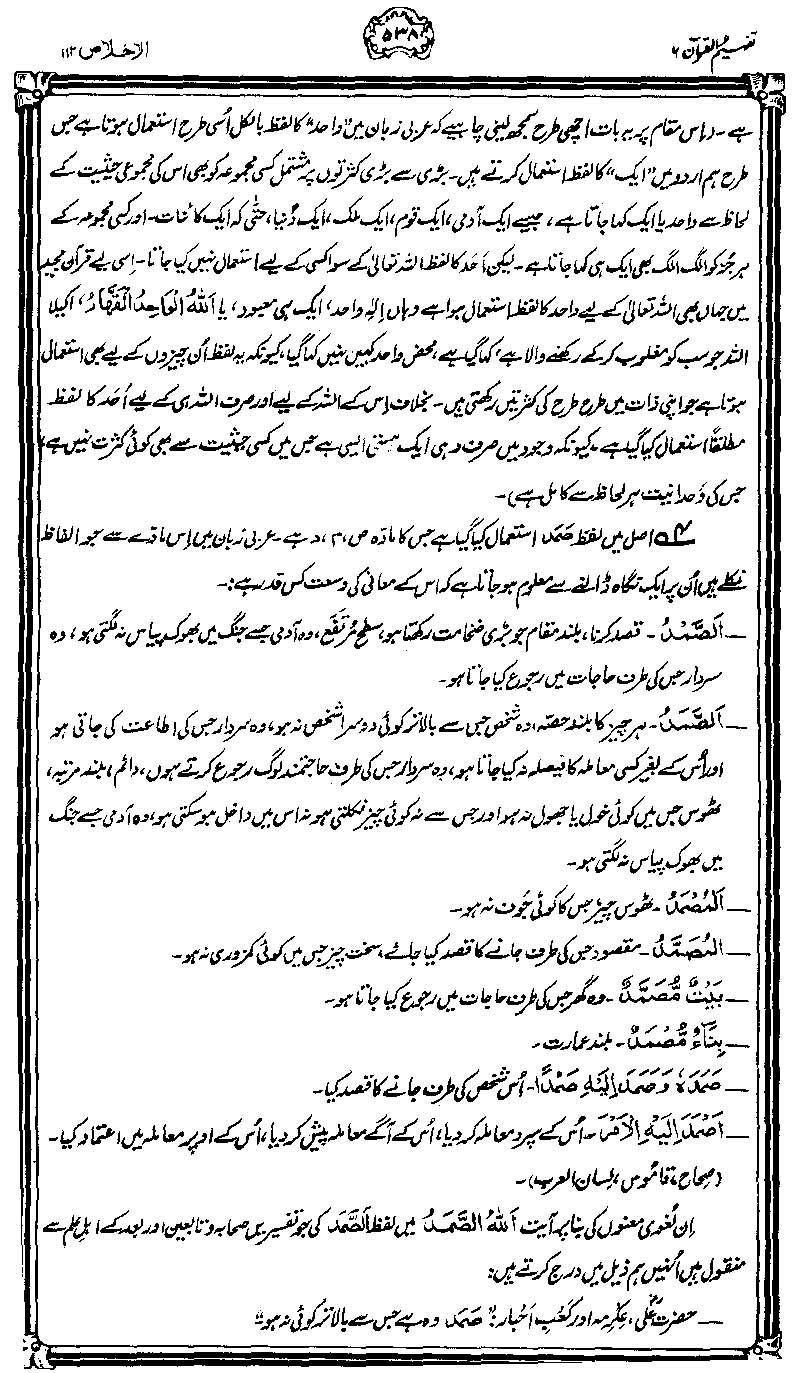 تفہیم القرآن ۶
۵۳۸
الاخلاص ۱۱۲
ہے۔ (اس مقام پر یہ بات اچھی طرح سمجھ لینی چاہیے کہ عربی زبان میں ”واحد“ کا لفظ بالکل اُسی طرح استعمال ہوتا ہے جس
طرح ہم اردو میں ”ایک“ کا لفظ استعمال کرتے ہیں۔ بڑی سے بڑی کثرتوں پر مشتمل کسی مجموعہ کو بھی اس کی مجموعی حیثیت کے
لحاظ سے واحد یا ایک کہا جاتا ہے، جیسے ایک آدمی، ایک قوم، ایک ملک، ایک دُنیا، حتّٰی کہ ایک کائنات۔ اور کسی مجموعہ کے
ہر جُز کو الگ الگ بھی ایک ہی کہا جاتا ہے۔ لیکن اَحَد کا لفظ اللہ تعالیٰ کے سوا کسی کے لیے استعمال نہیں کیا جاتا۔ اسی لیے قرآن مجید
میں جہاں بھی اللہ تعالیٰ کے لیے واحد کا لفظ استعمال ہوا ہے وہاں اِلٰہ واحد، ایک ہی معبود، یا اَللّٰہُ الْوَاحِدُ الْقَھَّارُ، اکیلا
اللہ جو سب کو مغلوب کر کے رکھنے والا ہے، کہا گیا ہے، محض واحد کہیں نہیں کہا گیا، کیونکہ یہ لفظ اُن چیزوں کے لیے بھی استعمال
ہوتا ہے جو اپنی ذات میں طرح طرح کی کثرتیں رکھتی ہیں۔ بخلاف اِس کے اللہ کے لیے اور صرف اللہ ہی کے لیے اَحَد کا لفظ
مطلقاً استعمال کیا گیا ہے، کیونکہ وجود میں صرف وہی ایک ہستی ایسی ہے جس میں کسی حیثیت سے بھی کوئی کثرت نہیں ہے،
جس کی وَحدانیت ہر لحاظ سے کامل ہے)۔
۴؎ اصل میں لفظ صَمَد استعمال کیا گیا ہے جس کا مادّہ ص، م، د ہے۔ عربی زبان میں اِس مادّے سے جو الفاظ
نکلے ہیں اُن پر ایک نگاہ ڈالنے سے معلوم ہو جاتا ہے کہ اس کے معانی کی وسعت کس قدر ہے:۔
— اَلصَّمْدُ۔ قصد کرنا، بلند مقام جو بڑی ضخامت رکھتا ہو، سطح مُرتفَع، وہ آدمی جسے جنگ میں بھوک پیاس نہ لگتی ہو، وہ
سردار جس کی طرف حاجات میں رجوع کیا جاتا ہو۔
— اَلصَّمَدُ۔ ہر چیز کا بلند حصّہ، وہ شخص جس سے بالا تر کوئی دوسرا شخص نہ ہو، وہ سردار جس کی اطاعت کی جاتی ہو
اور اُس کے بغیر کسی معاملہ کا فیصلہ نہ کیا جاتا ہو، وہ سردار جس کی طرف حاجتمند لوگ رجوع کرتے ہوں، دائم، بلند مرتبہ،
ٹھوس جس میں کوئی خول یا جھول نہ ہو اور جس سے نہ کوئی چیز نکلتی ہو نہ اس میں داخل ہو سکتی ہو، وہ آدمی جسے جنگ
میں بھوک پیاس نہ لگتی ہو۔
— اَلْمُصْمَدُ۔ ٹھوس چیز جس کا کوئی جَوف نہ ہو۔
— اَلْمُصَمَّدُ۔ مقصود جس کی طرف جانے کا قصد کیا جائے، سخت چیز جس میں کوئی کمزوری نہ ہو۔
— بَیْتٌ مُّصَمَّدٌ۔ وہ گھر جس کی طرف حاجات میں رجوع کیا جاتا ہو۔
— بِنَآءٌ مُّصْمَدٌ۔ بلند عمارت۔
— صَمَدَہٗ وَصَمَدَ اِلَیْہِ صَمْدًا۔ اُس شخص کی طرف جانے کا قصد کیا۔
— اَصْمَدَ اِلَیْہِ الْاَمْرَ۔ اُس کے سپرد معاملہ کر دیا، اُس کے آگے معاملہ پیش کر دیا، اُس کے اوپر معاملہ میں اعتماد کیا۔
(صحاح، قاموس، لسان العرب)۔
اِن لُغوی معنوں کی بنا پر آیت اَللّٰہُ الصَّمَدُ میں لفظ اَلصَّمَد کی جو تفسیریں صحابہ و تابعین اور بعد کے اہلِ علم سے
منقول ہیں اُنہیں ہم ذیل میں درج کرتے ہیں:
— حضرت علیؓ، عِکرِمہ اور کَعْبِ اَحْبار: ”صَمَد وہ ہے جس سے بالا تر کوئی نہ ہو“